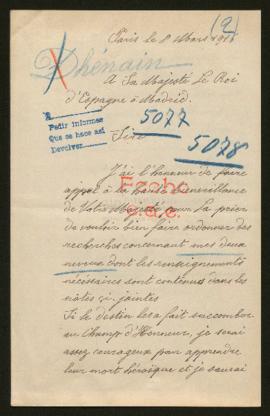 (2)
Paris le 8 Mars 1918
Dhénain
A Sa Majesté Le Roi
d'Espagne à Madrid.
Pedir informes
Que se hace así
Devolver
5077
Sire
5078
J'ai l'honneur de faire
appel à la haute bienveillance
Fecho
de Votre Majesté pour La prier
de vouloir bien faire ordonner des
recherches concernant mes deux
neveux dont les renseignements
nécessaires sont contenus dans les
notes ci jointes
Si le destin les a fait succomber
au Champ d'Honneur, je serai
assez courageux pour apprendre
leur mort héroïque et je saurai